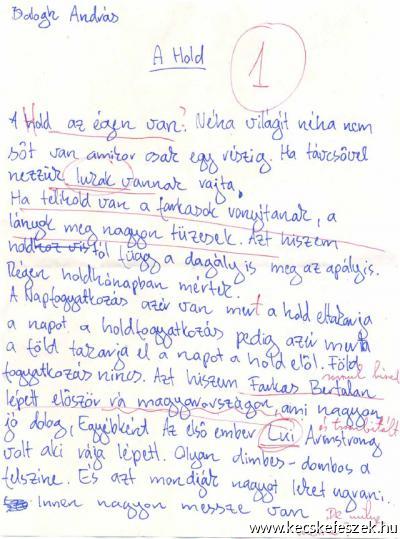 Balogh András
A Hold
1
A Hold az égen van? Néha világít néha nem
sőt van amikor csak egy részig. Ha távcsővel
nézzük lukak vannak rajta.
Ha telihold van a farkasok vonyítanak, a
lányok meg nagyon tüzesek. Azt hiszem
holdtól függ a dagály is meg az apályis.
Régen holdhónapban mértek.
A Napfogyatkozás azér van mert a hold eltakarja
a napot a holdfogyatkozás pedig azér mert
a föld takarja el a napot a hold elől. Föld
fogyatkozás nincs. Azt hiszem Farkas Bertalan
lépett először rá magyarországon, ami nagyon
jó dolog, Egyébként Az első ember Lui Armstrong és trombitált
volt aki rája lépett. Olyan dimbes-dombos a
felszine. És azt mondják nagyot lehet ugrani..
Innen nagyon messze van De
www.kecskefeszek.hu